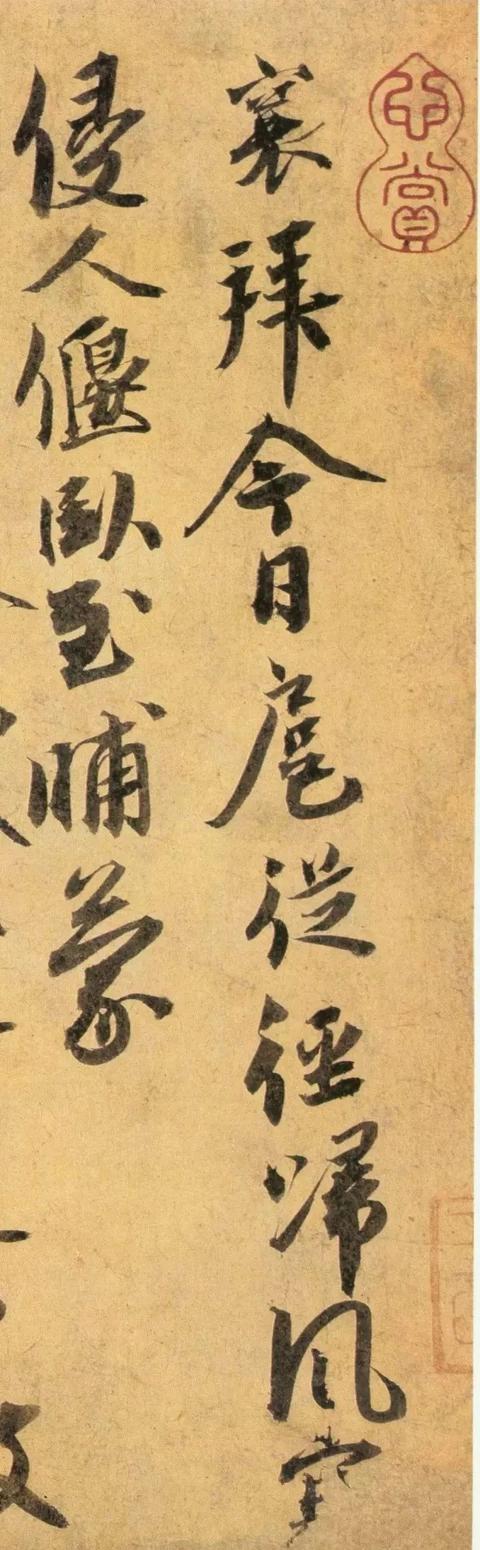 賞
襄拜今日扈從徑歸風寒
侵人偃臥至晡蒙